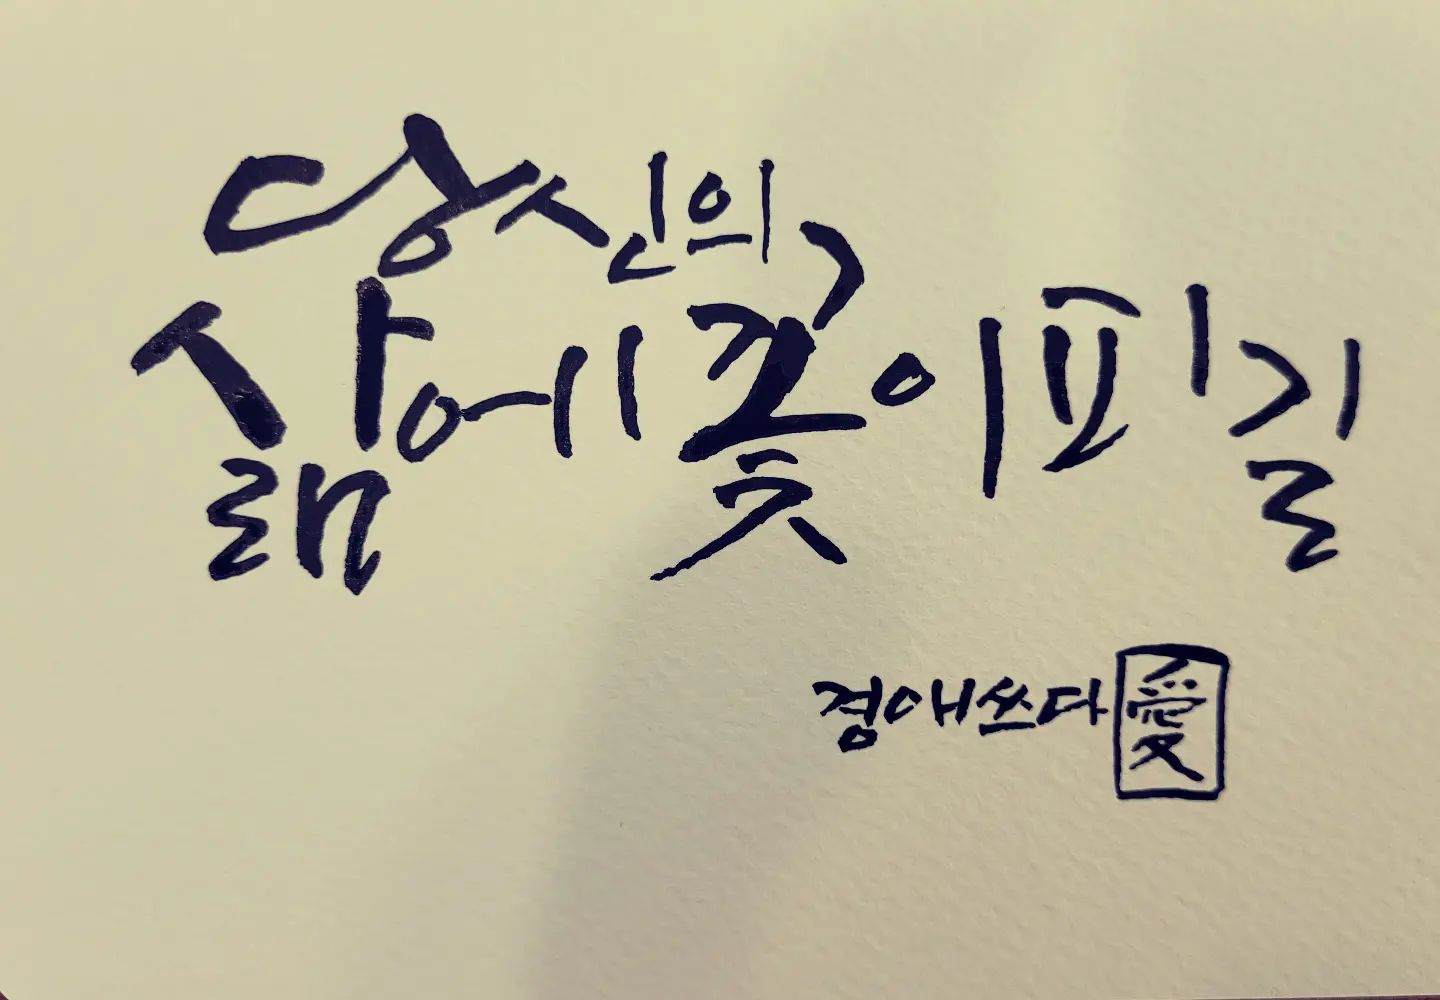 당신의
삶에 꽃이 피길
경애쓰다 愛